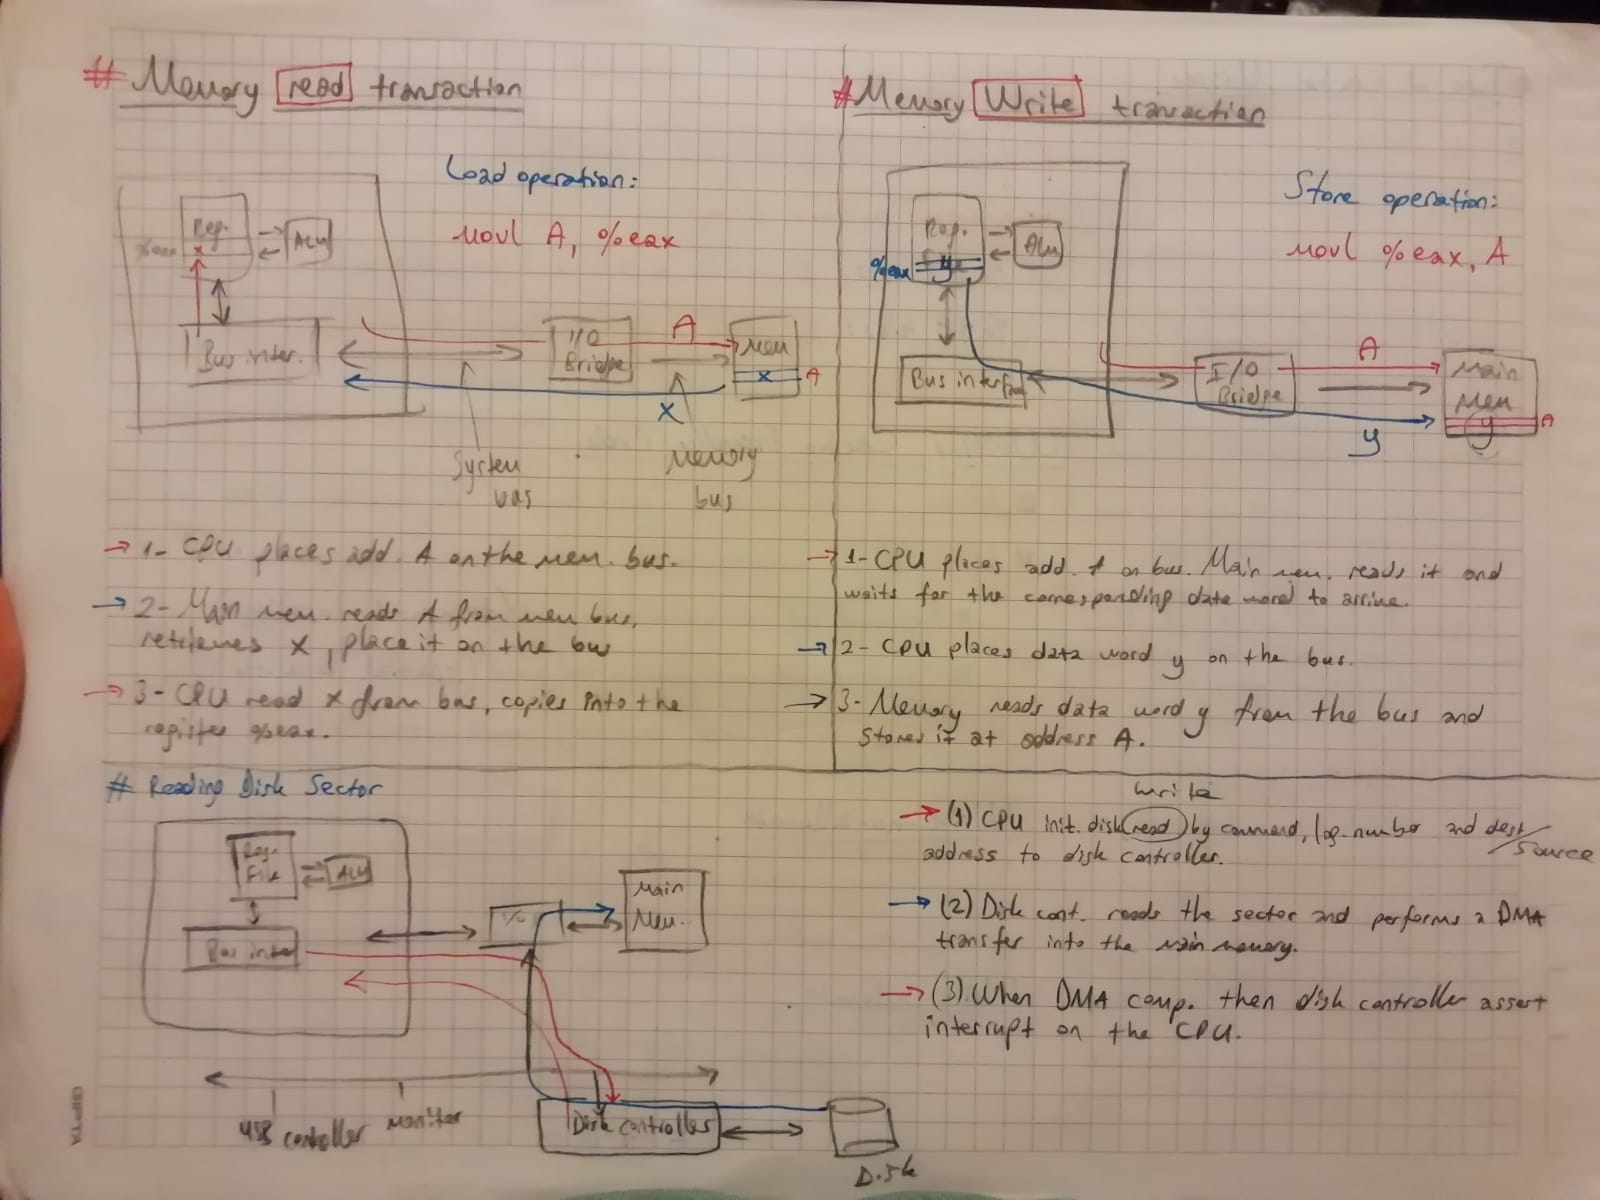 # Memory read transaction
Load operation:
movl A, %eax
Reg.
ALU
%eax
x
Bus inter.
I/O
Bridge
A
Mem
x
A
x
System
bus
Memory
bus
→ 1- CPU places add. A on the mem. bus.
→ 2- Main mem. reads A from mem bus,
retrieves x, place it on the bus
→ 3- CPU read x from bus, copies into the
register %eax.
# Memory Write transaction
Store operation:
movl %eax, A
Reg.
ALU
%eax
y
Bus interface
I/O
Bridge
A
Main
Mem
y
A
y
→ 1- CPU places add. A on bus. Main mem. reads it and
waits for the corresponding data word to arrive.
→ 2- CPU places data word y on the bus.
→ 3- Memory reads data word y from the bus and
stores it at address A.
# Reading Disk Sector
Reg.
File
ALU
Bus inter
I/O
Main
Mem.
USB controller
monitor
Disk controller
Disk
write
→ (1) CPU init. disk read by command, log. number and dest/
source
address to disk controller.
→ (2) Disk cont. reads the sector and performs a DMA
transfer into the main memory.
→ (3) When DMA comp. then disk controller assert
interrupt on the CPU.
GIPTA